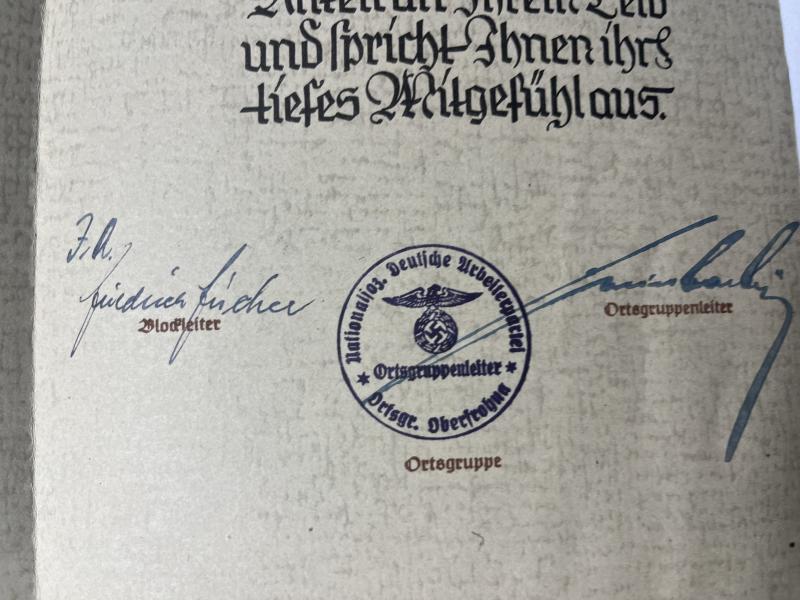 und spricht Ihnen ihr
tiefes Mitgefühl aus.
I.A.
Friedrich Fischer
Blockleiter
Nationalsoz. Deutsche Arbeiterpartei
Ortsgruppenleiter
Ortsgr. Oberfrohna
Ortsgruppenleiter
Ortsgruppe